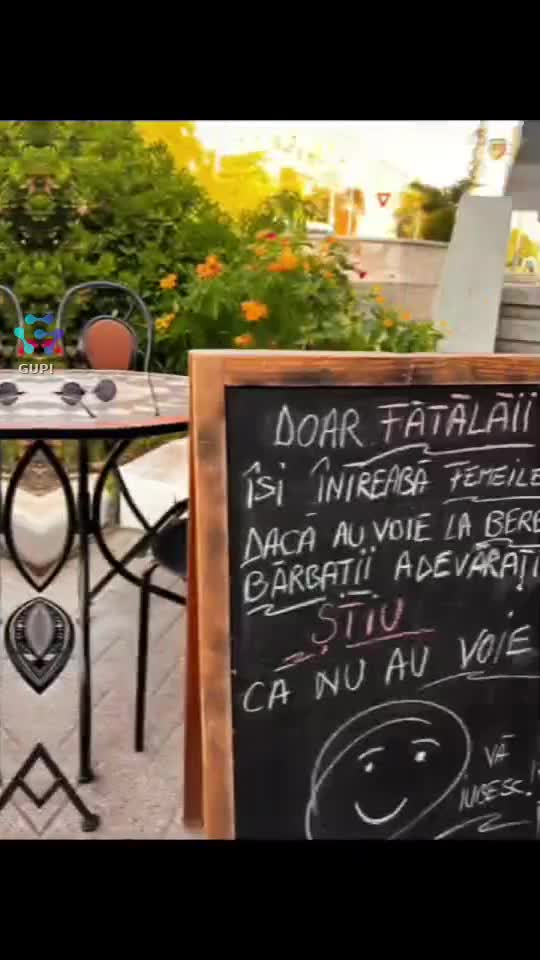 GUP!
DOAR FĂTĂLĂII
ÎSI ÎNTREABĂ FEMEILE
DACĂ AU VOIE LA BERE
BĂRBAȚII ADEVĂRAȚI
ȘTIU
CA NU AU VOIE
VĂ
IUBESC!